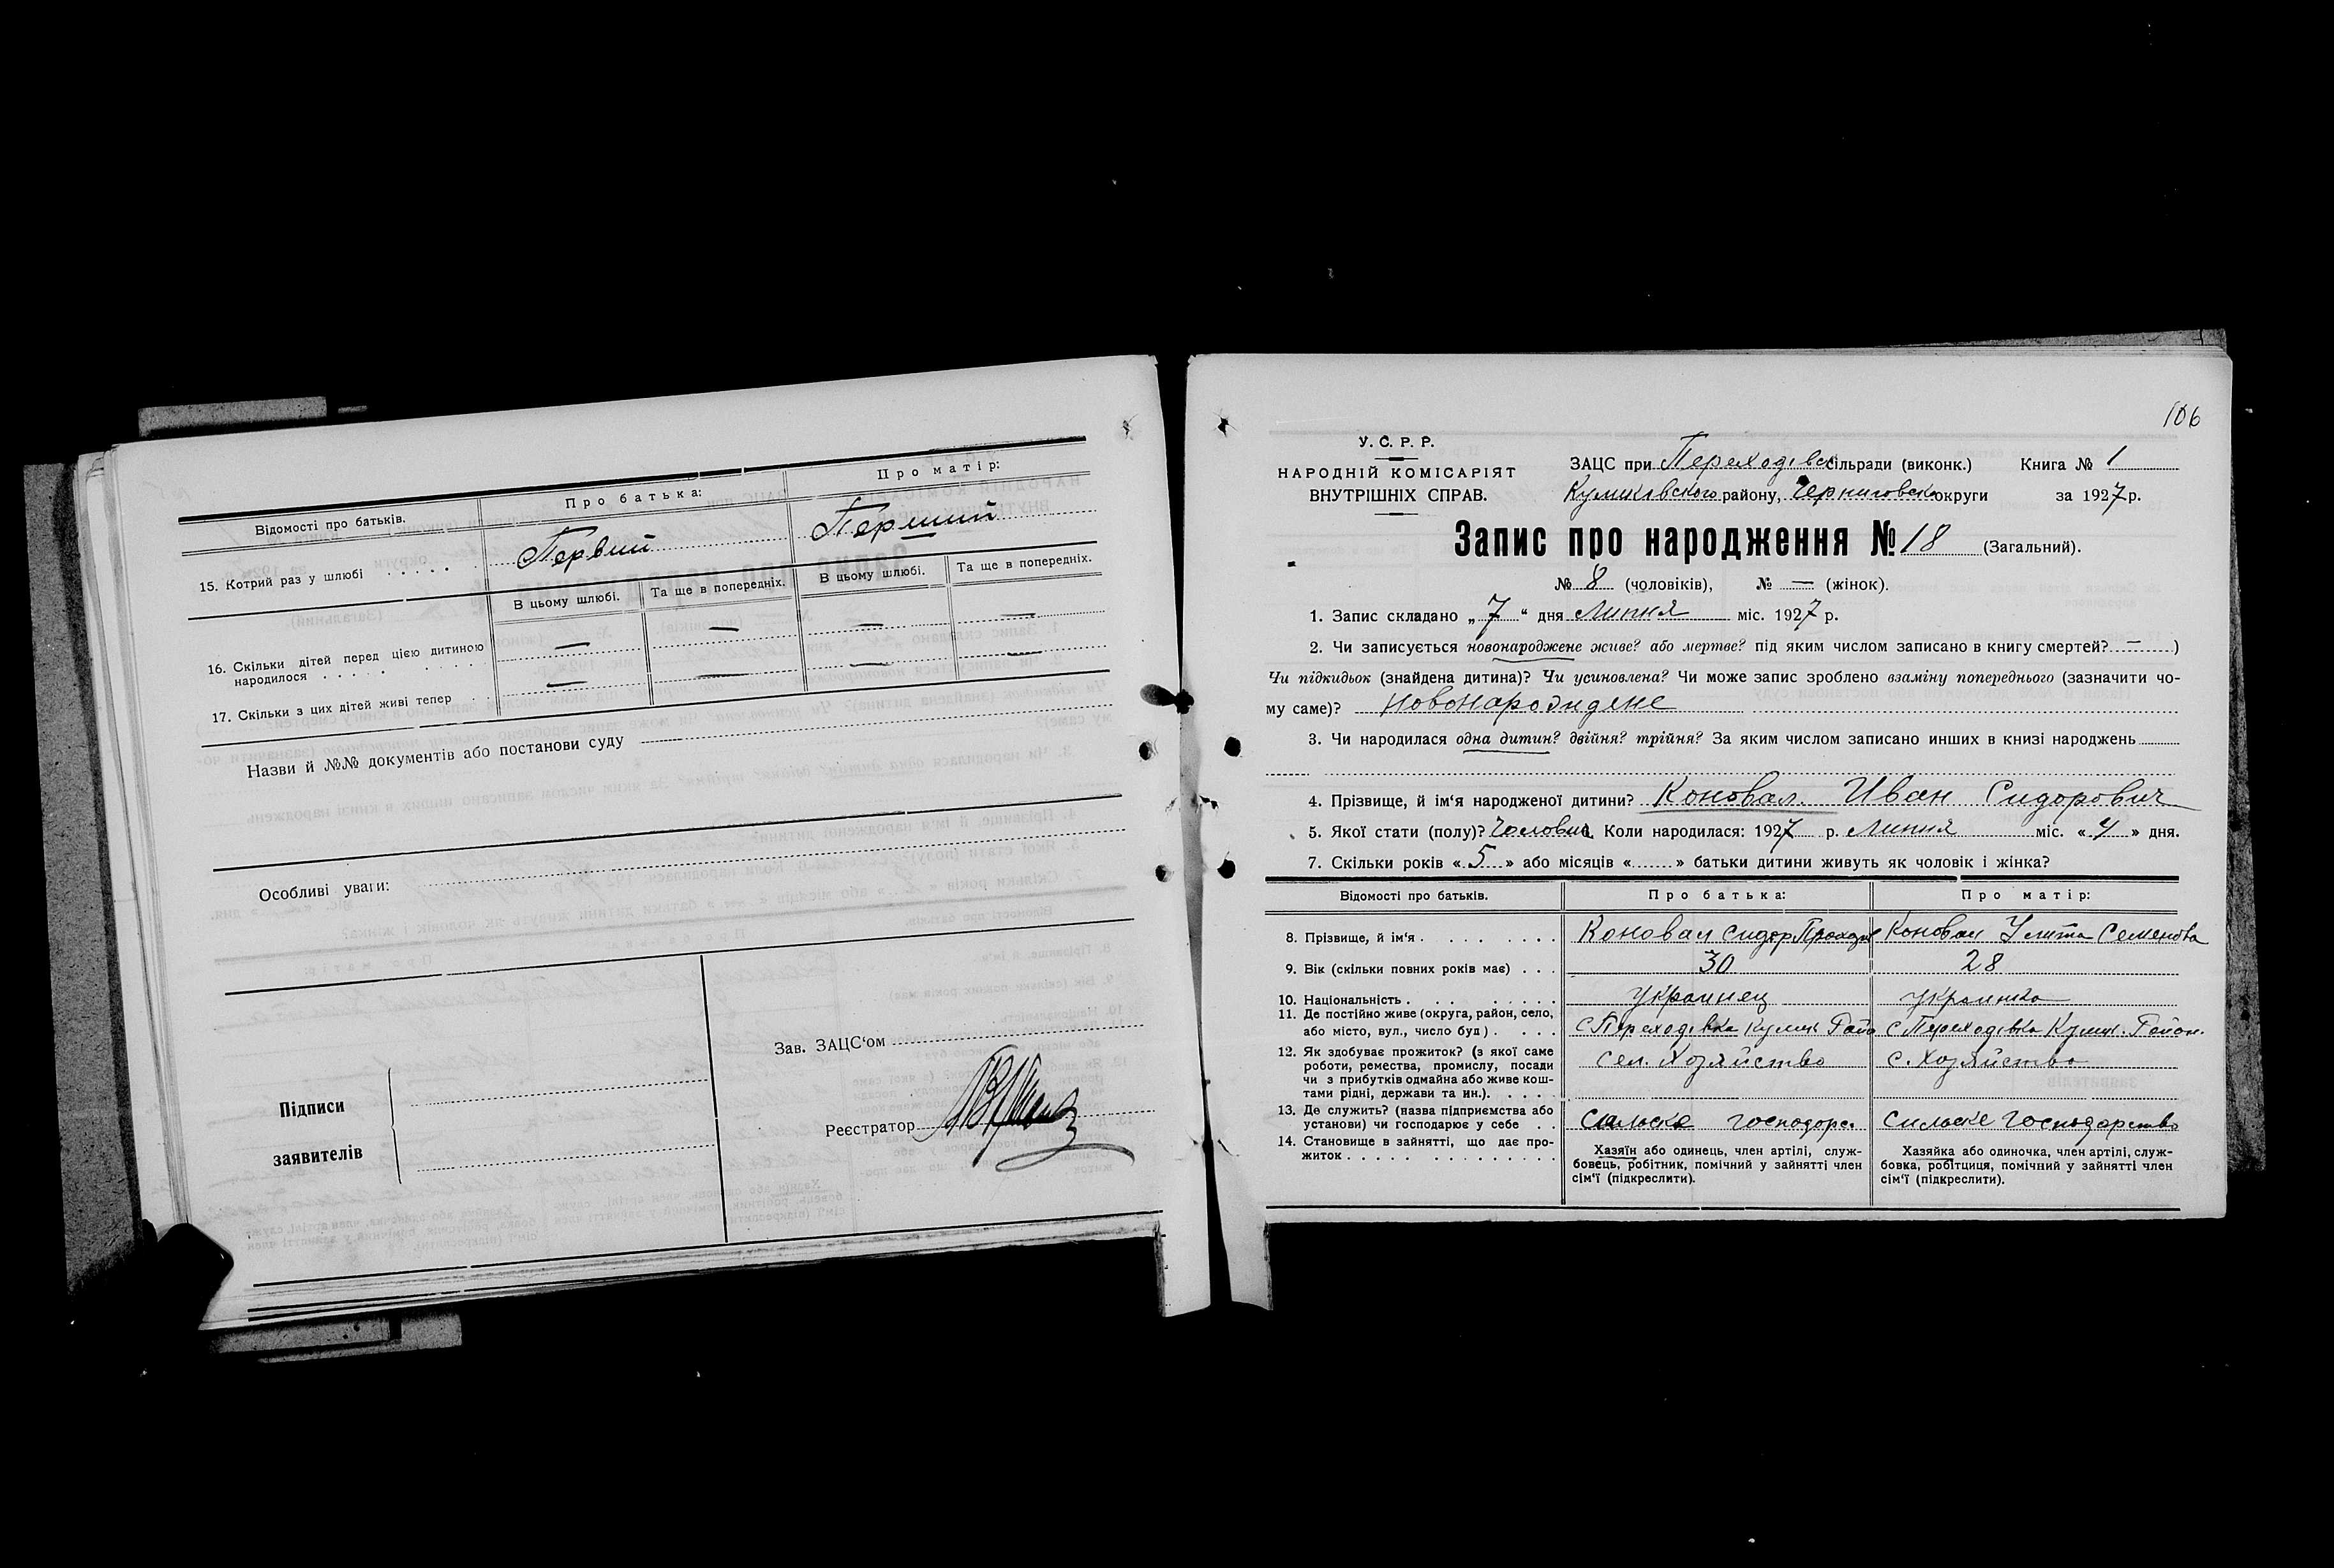 Відомості про батьків. Про батька: Про матір:
15. Котрий раз у шлюбі . . . . . Первий Перший
В цьому шлюбі. Та ще в попередніх. В цьому шлюбі. Та ще в попередніх.
16. Скільки дітей перед цією дитиною — — — —
народилося . . . . .
17. Скільки з цих дітей живі тепер . . — — — —
Назви й №№ документів або постанови суду
Особливі уваги:
Підписи
заявителів
Зав. ЗАЦС‘ом
Реєстратор
106
У. С. Р. Р.
НАРОДНІЙ КОМІСАРІЯТ
ВНУТРІШНІХ СПРАВ.
ЗАЦС при Переходівс сільради (виконк.) Книга № 1
Куликівського району, Черниговско округи за 1927 р.
Запис про народження № 18 (Загальний).
№ 8 (чоловіків), № — (жінок).
1. Запис складано „7“ дня Липня міс. 1927 р.
2. Чи записується новонароджене живе? або мертве? під яким числом записано в книгу смертей? — )
Чи підкидьок (знайдена дитина)? Чи усиновлена? Чи може запис зроблено взаміну попереднього (зазначити чо-
му саме)? Новонародидене
3. Чи народилася одна дитин? двійня? трійня? За яким числом записано инших в книзі народжень
4. Прізвище, й ім‘я народженої дитини? Коновал Иван Сидорович
5. Якої стати (полу)? Чоловіч. Коли народилася: 1927 р. Липня міс. «4» дня.
7. Скільки років «5» або місяців « » батьки дитини живуть як чоловік і жінка?
Відомості про батьків. Про батька: Про матір:
8. Прізвище, й ім‘я . . . . . . . . Коновал Сидор Коновал Улита Семенова
9. Вік (скільки повних років має) . . . 30 28
10. Національність . . . . . . . . Украинец Украинка
11. Де постійно живе (округа, район, село,
або місто, вул., число буд) . . . . с Переходівка Кулик Райо с Переходівка Кулик. Район.
12. Як здобуває прожиток? (з якої саме Сел. Хозяйство с. Хозяйство
роботи, ремества, промислу, посади
чи з прибутків одмайна або живе кош-
тами рідні, держави та ин.). . . . .
13. Де служить? (назва підприємства або
установи) чи господарює у себе . . Сильске господарс. Сильске Господарство
14. Становище в зайнятті, що дає про-
житок . . . . . . . . . . . . . . .
Хазяїн або одинець, член артілі, служ-
бовець, робітник, помічний у зайнятті член
сім‘ї (підкреслити).
Хазяйка або одиночка, член артілі, служ-
бовка, робітциця, помічний у зайнятті член
сім‘ї (підкреслити).